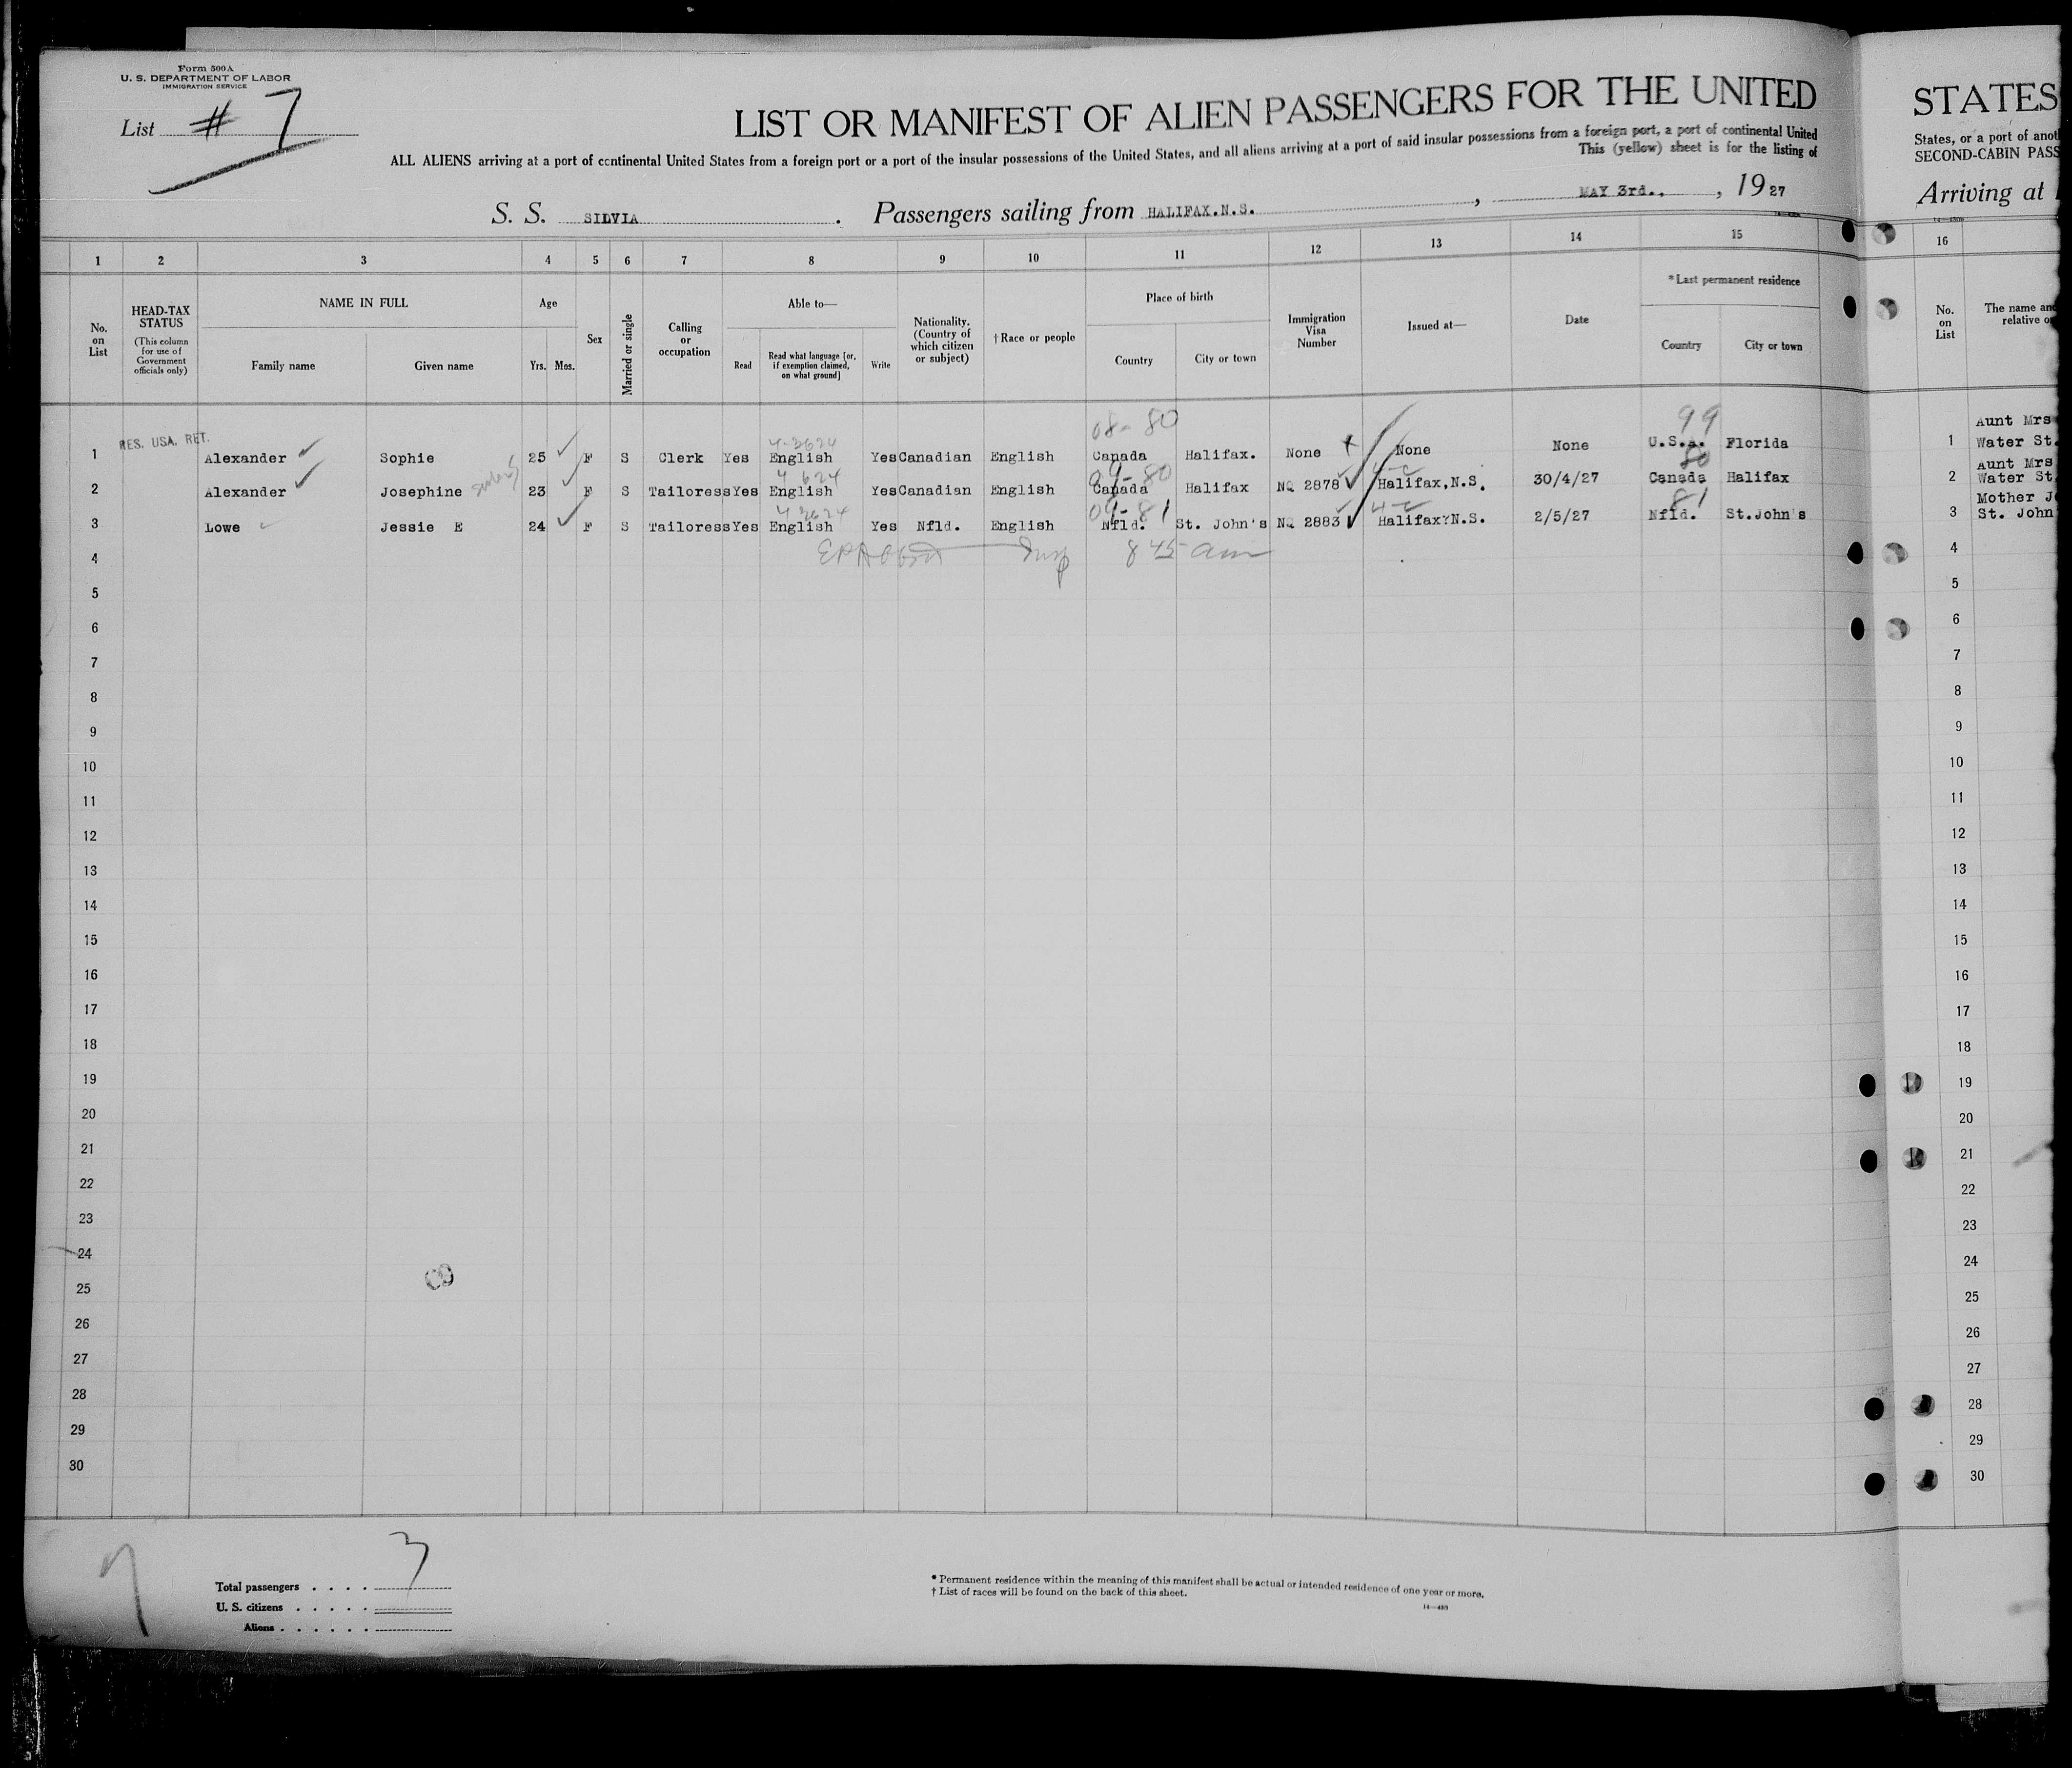 Form 500A
U. S. DEPARTMENT OF LABOR
IMMIGRATION SERVICE
List # 7
LIST OR MANIFEST OF ALIEN PASSENGERS FOR THE UNITED
ALL ALIENS arriving at a port of continental United States from a foreign port or a port of the insular possessions of the United States, and all aliens arriving at a port of said insular possessions from a foreign port, a port of continental United
This (yellow) sheet is for the listing of
S. S. SILVIA. Passengers sailing from HALIFAX.N.S. , MAY 3rd., , 1927
STATES
States, or a port of anot
SECOND-CABIN PASS
Arriving at
1 2 3 4 5 6 7 8 9 10 11 12 13 14 15 16
No. on List
HEAD-TAX STATUS
(This column for use of Government officials only)
NAME IN FULL
Family name Given name
Age
Yrs. Mos.
Sex
Married or single
Calling or occupation
Able to—
Read
Read what language [or, if exemption claimed, on what ground]
Write
Nationality. (Country of which citizen or subject)
† Race or people
Place of birth
Country City or town
Immigration Visa Number
Issued at—
Date
* Last permanent residence
Country City or town
No. on List
The name and
relative o
08-80 99
1 RES. USA. RET. Alexander Sophie 25 F S Clerk Yes English Yes Canadian English Canada Halifax. None None None U.S.A. Florida
2 Alexander Josephine 23 F S Tailoress Yes English Yes Canadian English Canada Halifax NQ 2878 Halifax,N.S. 30/4/27 Canada Halifax
3 Lowe Jessie E 24 F S Tailoress Yes English Yes Nfld. English Nfld. St. John's NQ 2883 Halifax N.S. 2/5/27 Nfld. St.John's
8 45 am
4
5
6
7
8
9
10
11
12
13
14
15
16
17
18
19
20
21
22
23
24
25
26
27
28
29
30
Aunt Mrs
1 Water St.
Aunt Mrs
2 Water St.
Mother J
3 St. John
4
5
6
7
8
9
10
11
12
13
14
15
16
17
18
19
20
21
22
23
24
25
26
27
28
29
30
7
Total passengers . . . . 3
U. S. citizens . . . . .
Aliens . . . . . .
* Permanent residence within the meaning of this manifest shall be actual or intended residence of one year or more.
† List of races will be found on the back of this sheet.